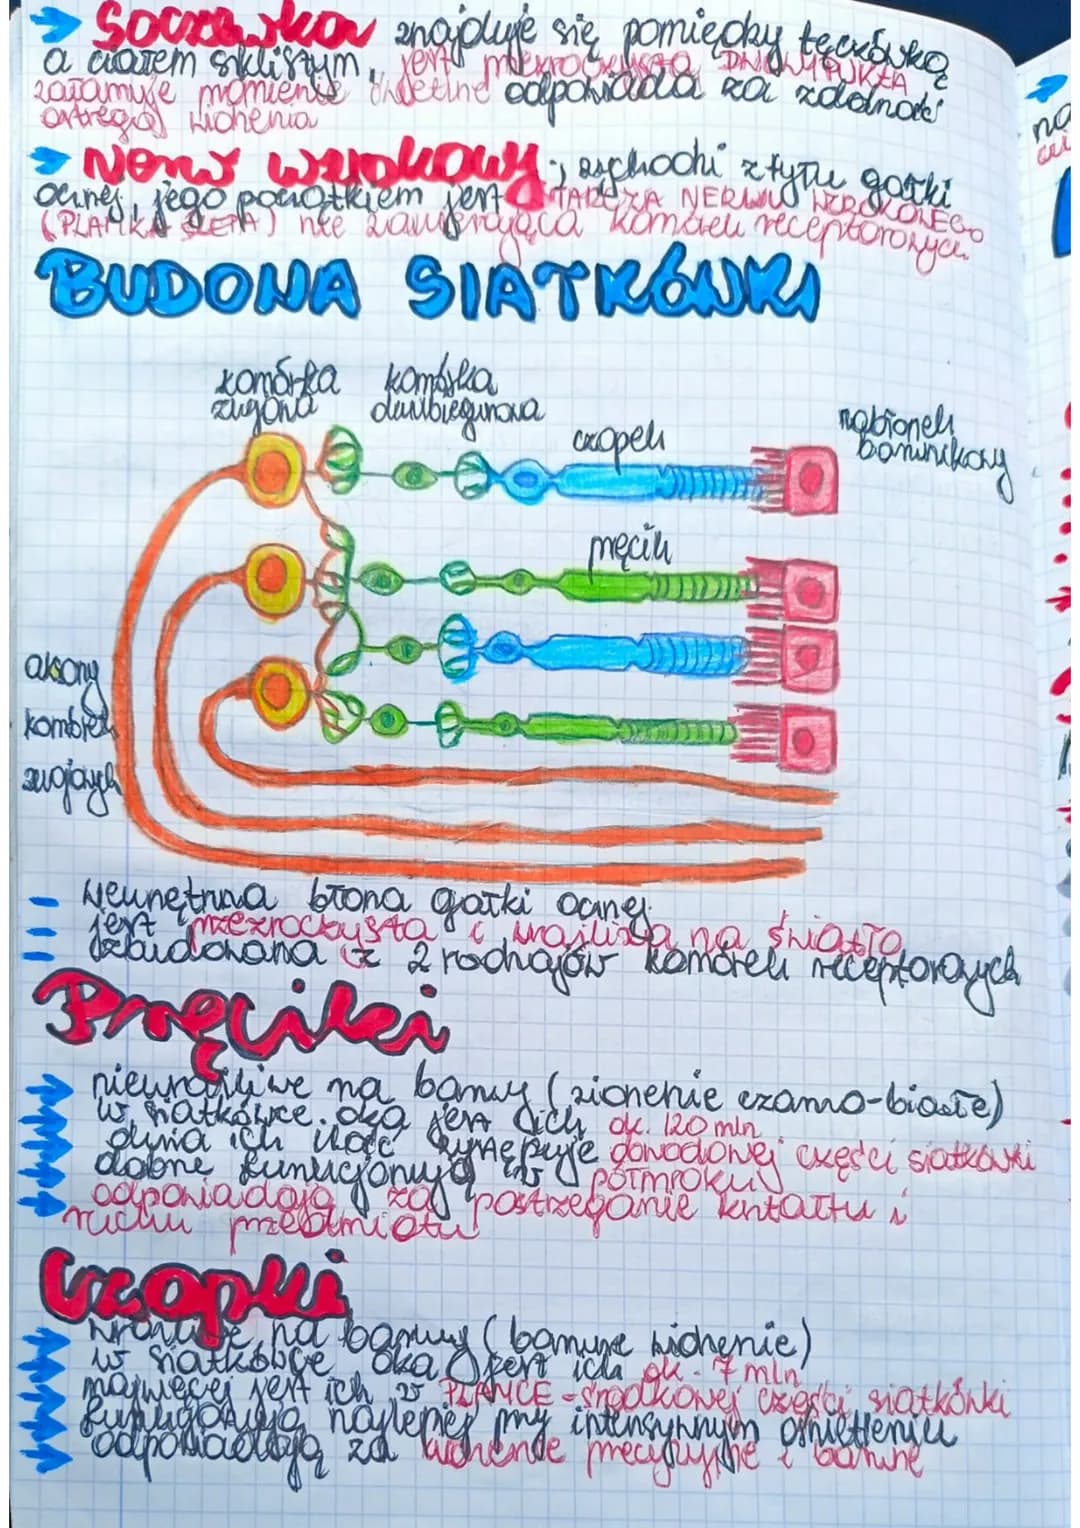 Soczewka znajduje się pomiędzy tęczówką
a ciałem szklistym, jest przezroczysta, DWUWYPUKŁA
załamuje promienie świetlne odpowiada za zdolność
ostrego widzenia
Nerw wzrokowy; wychodzi z tyłu gałki
ocznej, jego początkiem jest TARCZA NERWU WZROKOWEGO
(PLAMKA ŚLEPA) nie zawierająca komórek receptorowych
BUDOWA SIATKÓWKI
komórka zwojowa
komórka dwubiegunowa
czopek
nabłonek barwnikowy
pręcik
aksony
komórek
zwojowych
wewnętrzna błona gałki ocznej
jest przezroczysta i wrażliwa na światło
zbudowana z 2 rodzajów komórek receptorowych
Pręciki
niewrażliwe na barwy (widzenie czarno-białe)
w siatkówce oka jest ich ok. 120 mln
duża ich ilość występuje obwodowej części siatkówki
dobrze funkcjonują w półmroku
odpowiadają za postrzeganie kształtu i
ruchu przedmiotu
Czopki
wrażliwe na barwy (barwne widzenie)
w siatkówce oka jest ich ok. 7 mln
najwięcej jest ich w PLAMCE - środkowej części siatkówki
funkcjonują najlepiej przy intensywnym oświetleniu
odpowiadają za widzenie precyzyjne i barwne